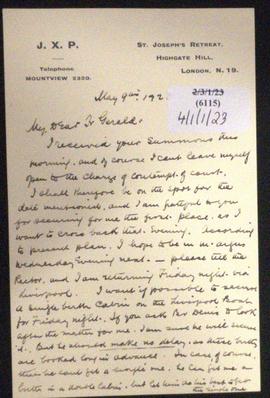 J. X. P.
Telephone
MOUNTVIEW 2320.
ST. JOSEPH'S RETREAT,
HIGHGATE HILL,
LONDON, N. 19.
2/3/1/23
(6115)
4/1/1/23
May 9th, 192
My Dear Fr Gerald:
I received your Summons this
morning, and of course I cant leave myself
open to the charge of Contempt of Court.
I shall therefore be on the spot for the
date mentioned, and I am grateful to you
for securing for me the first place, as I
want to cross back that evening. According
to present plan, I hope to be in Mt. Argus
Wednesday Evening next — please tell the
Rector, and I am returning Friday night via
Liverpool. I want if possible to secure
a single berth Cabin on the Liverpool Boat
for Friday night. If you ask Br Denis to look
after the matter for me, I am sure he will secure
it. But he should make no delay, as these berths
are booked long in advance. In case of course
that he cant get a single one, he can get me a
berth in a double Cabin. but let him do his best to get
the single one